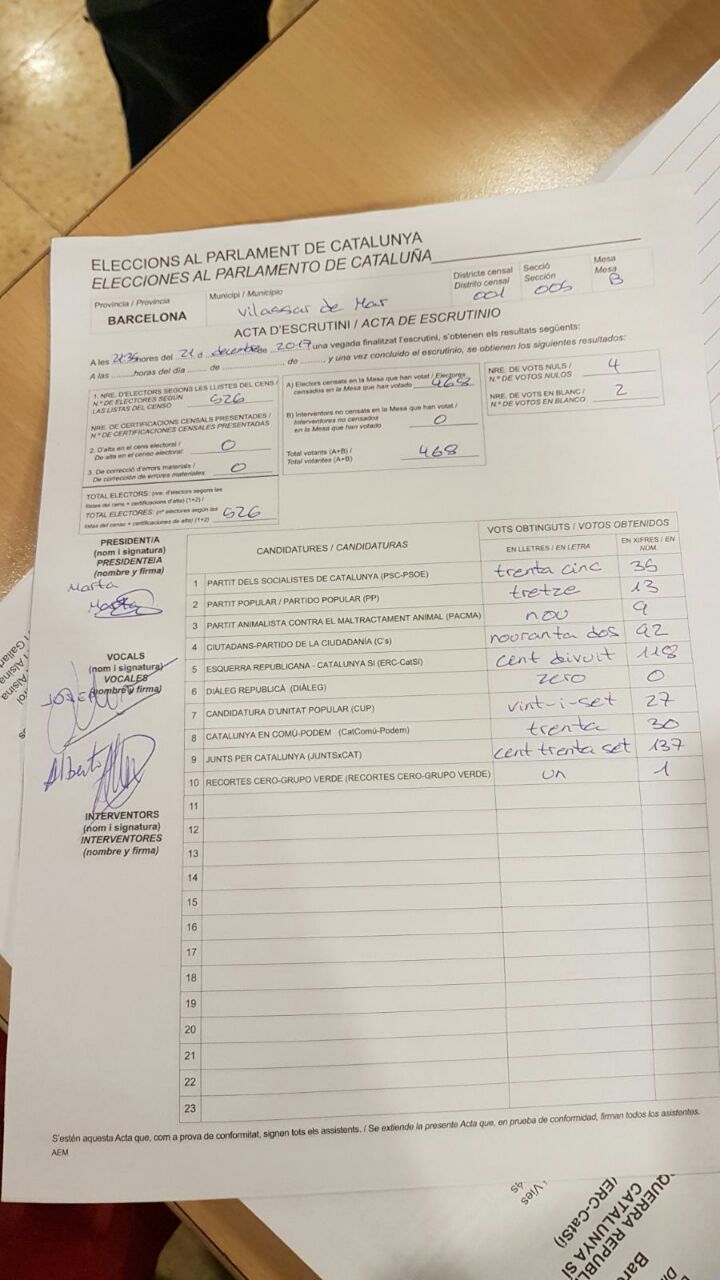 ELECCIONS AL PARLAMENT DE CATALUNYA
ELECCIONES AL PARLAMENTO DE CATALUÑA
Provincia / Provincia
BARCELONA
Municipi / Municipio
Vilassar de Mar
Districte censal
Distrito censal
001
Secció
Sección
005
Mesa
Mesa
B
ACTA D'ESCRUTINI / ACTA DE ESCRUTINIO
A les 21:35 hores del 21 d decembre de 2017 una vegada finalitzat l'escrutini, s'obtenen els resultats següents:
A las ........horas del día ...... de ................. de ........, y una vez concluido el escrutinio, se obtienen los siguientes resultados:
1. NRE. D'ELECTORS SEGONS LES LLISTES DEL CENS /
N.º DE ELECTORES SEGÚN
LAS LISTAS DEL CENSO
526
NRE. DE CERTIFICACIONS CENSALS PRESENTADES /
N.º DE CERTIFICACIONES CENSALES PRESENTADAS
2. D'alta en el cens electoral /
De alta en el censo electoral:
0
3. De correcció d'errors materials /
De corrección de errores materiales:
0
TOTAL ELECTORS: (nre. d'electors segons les
llistes del cens + certificacions d'alta) (1+2) /
TOTAL ELECTORES: (nº electores según las
listas del censo + certificaciones de alta) (1+2)
526
A) Electors censats en la Mesa que han votat / Electores
censados en la Mesa que han votado
468
B) Interventors no censats en la Mesa que han votat /
Interventores no censados
en la Mesa que han votado
0
Total votants (A+B) /
Total votantes (A+B)
468
NRE. DE VOTS NULS /
N.º DE VOTOS NULOS
4
NRE. DE VOTS EN BLANC /
N.º DE VOTOS EN BLANCO
2
PRESIDENT/A
(nom i signatura)
PRESIDENTE/A
(nombre y firma)
Marta
Marta
VOCALS
(nom i signatura)
VOCALES
(nombre y firma)
Alberto
INTERVENTORS
(nom i signatura)
INTERVENTORES
(nombre y firma)
CANDIDATURES / CANDIDATURAS
VOTS OBTINGUTS / VOTOS OBTENIDOS
EN LLETRES / EN LETRA
EN XIFRES / EN NÚM.
1 PARTIT DELS SOCIALISTES DE CATALUNYA (PSC-PSOE) trenta cinc 35
2 PARTIT POPULAR / PARTIDO POPULAR (PP) tretze 13
3 PARTIT ANIMALISTA CONTRA EL MALTRACTAMENT ANIMAL (PACMA) nou 9
4 CIUTADANS-PARTIDO DE LA CIUDADANÍA (C's) nouranta dos 92
5 ESQUERRA REPUBLICANA - CATALUNYA SÍ (ERC-CatSí) cent divuit 118
6 DIÀLEG REPUBLICÀ (DIÀLEG) zero 0
7 CANDIDATURA D'UNITAT POPULAR (CUP) vint-i-set 27
8 CATALUNYA EN COMÚ-PODEM (CatComú-Podem) trenta 30
9 JUNTS PER CATALUNYA (JUNTSxCAT) cent trenta set 137
10 RECORTES CERO-GRUPO VERDE (RECORTES CERO-GRUPO VERDE) un 1
11
12
13
14
15
16
17
18
19
20
21
22
23
S'estén aquesta Acta que, com a prova de conformitat, signen tots els assistents. / Se extiende la presente Acta que, en prueba de conformidad, firman todos los asistentes.
AEM